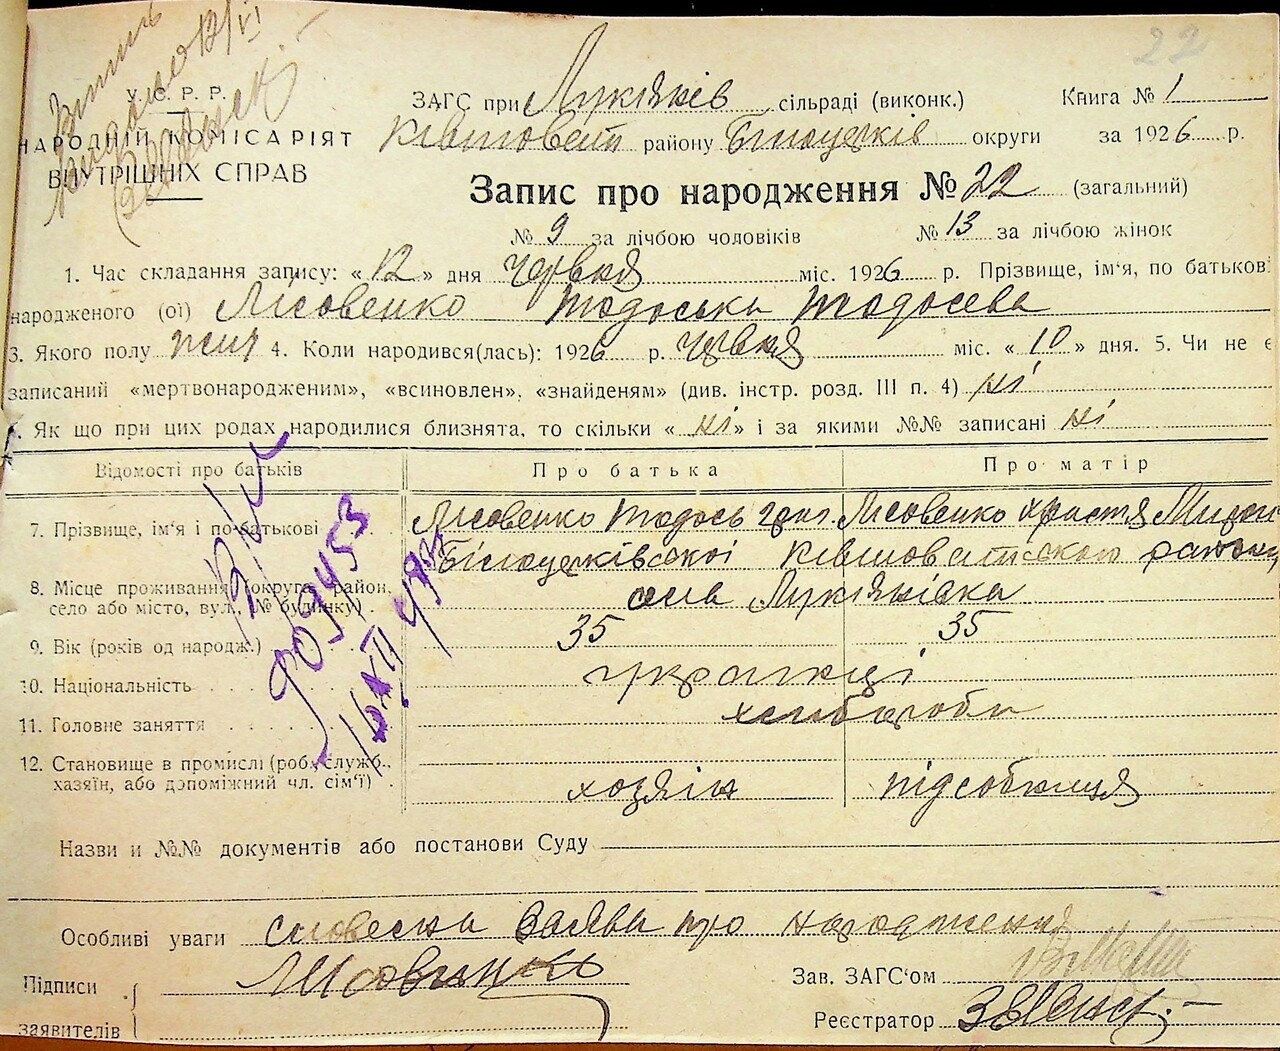 22
У.С.Р.Р.
НАРОДНІЙ КОМІСАРІЯТ
ВНУТРІШНІХ СПРАВ
ЗАГС при Лукянів сільраді (виконк.) Книга № 1
району Білоцерків округи за 1926 р.
Запис про народження № 22 (загальний)
№ 9 за лічбою чоловіків № 13 за лічбою жінок
1. Час складання запису: « 12 » дня червня міс. 1926 р. Прізвище, ім'я, по батьков
народженого (ої) Лісовенко Тодоська Тодосева
3. Якого полу жін 4. Коли народився(лась): 1926 р. червня міс. « 10 » дня. 5. Чи не є
записаний «мертвонародженим», «всиновлен», «знайденям» (див. інстр. розд. III п. 4) ні
Як що при цих родах народилися близнята, то скільки « ні » і за якими №№ записані ні
Відомості про батьків Про батька Про матір
7. Прізвище, ім'я і по-батькові Лісовенко Тодось Григ. Лісовенко Христя
Білоцерківської Ківшоватського району
8. Місце проживання (округа, район,
село або місто, вул., № будинку) село Лукянівка
9. Вік (років од народж.) 35 35
10. Національність українці
11. Головне заняття хлібороби
12. Становище в промислі (роб., служб.,
хазяїн, або допоміжний чл. сім'ї) хозяін підсобниця
Назви и №№ документів або постанови Суду
Особливі уваги словесна заява про народження
Підписи Лісовенко Зав. ЗАГС'ом
заявителів Реєстратор